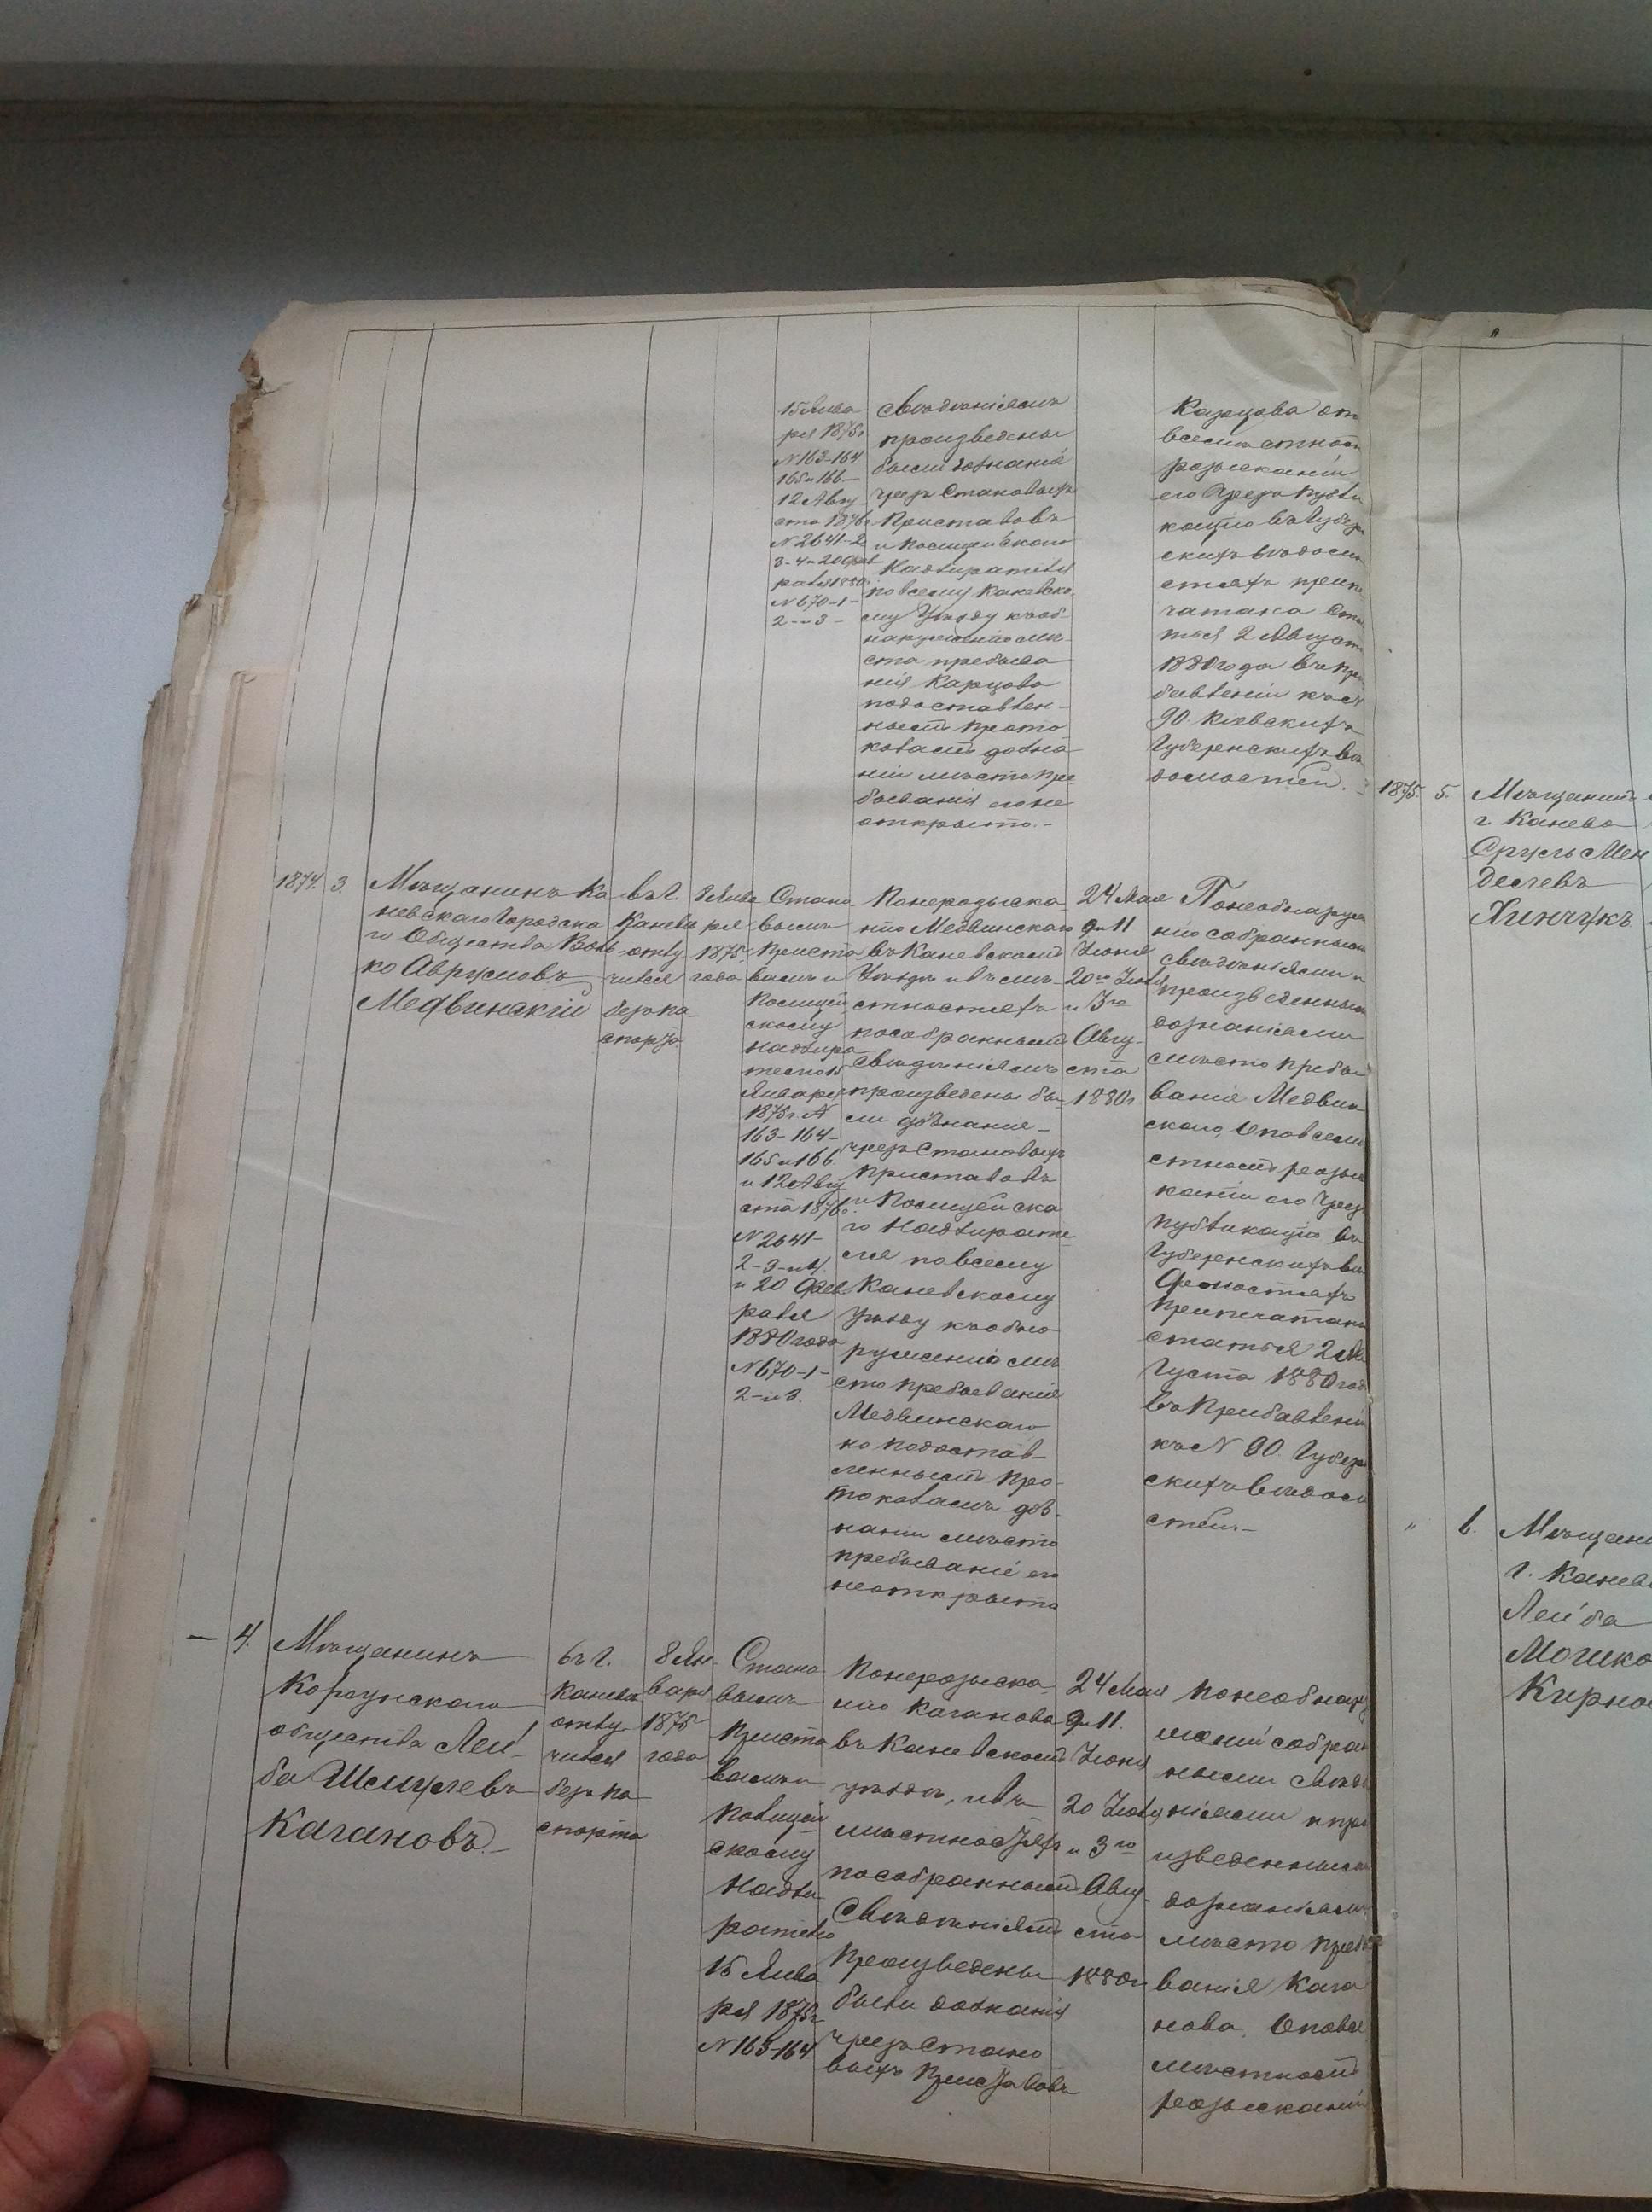 15 Янва
ря 1875г
№ 163-164
165 и 166-
12 Авгу
ста 1876г
№ 2641-2
3-4 и 20 Фев
раля 1880г.
№ 670-1-
2- и 3-
свѣдѣніямъ
произведены
были дознанія
чрезъ Становыхъ
Приставовъ
и Полицейскаго
Надзирателя
по всему Каневско
му Уѣзду къ об-
наруженію мѣ-
ста пребыва
нія Карцова
по доставлен-
нымъ прото
коламъ дозна-
ній мѣсто пре
быванія его не
открыто.-
Карцова
всемѣстномъ
розысканіи
его чрезъ публи
кацію въ Губерн
скихъ вѣдомо
стяхъ припе
чатана Ста
тья 2 Августа
1880 года въ При
бавленіи къ №
90 Кіевскихъ
Губернскихъ вѣ
домостей.-
1874. 3.
Мѣщанинъ Ка
невскаго Городска
го Общества Воль
ко Аврумовъ
Медвинскій
въ г.
Каневѣ
отлу-
чился
безъ па-
спорта
8 Янва
ря
1875
года
Стано
вымъ
Приста
вамъ и
Полицей
скому
Надзира
телю 15
Января
1875г. №
163-164-
165 и 166.
и 12 Авгу
ста 1876г.
№ 2641-
2-3- и 4.
и 20 Фев
раля
1880 года
№ 670-1-
2- и 3.
По нерозыска-
нію Медвинскаго
въ Каневскомъ
Уѣздѣ и въ мѣ-
стностяхъ
по собраннымъ
свѣдѣніямъ
произведены бы-
ли дознанія-
чрезъ Становыхъ
Приставовъ
и Полицейска
го Надзирате-
ля по всему
Каневскому
уѣзду къ обна
руженію мѣ
сто пребыванія
Медвинскаго
но по достав-
леннымъ про-
токоламъ доз-
наній мѣсто
пребываніе его
не открыто
24 Мая
9 и 11
Іюня
20го Іюля
и 3го
Авгу-
ста
1880г
По необнаруже
нію собранными
свѣдѣніями и
произведенными
дознаніями
мѣсто пребы
ванія Медвин
скаго, о повсемѣ
стномъ розыс
каніи его чрезъ
публикацію въ
Губернскихъ вѣ
домостяхъ
припечатана
статья 2 Ав
густа 1880 год
въ Прибавленіи
къ № 90. Губерн
скихъ вѣдомо
стей.-
— 4.
Мѣщанинъ
Корсунскаго
общества Лей-
ба Шмулевъ
Кагановъ.-
въ г.
Каневѣ
отлу-
чился
безъ па-
спорта
8 Ян-
варя
1875
года
Стано
вымъ
Приста
вамъ и
Полицей
скому
Надзи
рателю
15 Янва
ря 1875г
№ 163-164
По нерозыска-
нію Каганова
въ Каневскомъ
уѣздѣ, и въ
мѣстностяхъ
по собраннымъ
свѣдѣніямъ
произведены
были дознанія
чрезъ Стано
выхъ Приставовъ
24 Мая
9 и 11.
Іюня
20 Іюля
и 3го
Авгу-
ста
1880г
По необнару
женію собран
ными свѣдѣ
ніями и про
изведенными
дознаніями
мѣсто пребы
ванія Кага
нова. О повсе
мѣстномъ
розысканіи
1875. 5.
Мѣщанинъ
г. Канева
Сруль Мен
делевъ
Хинчукъ
" 6.
Мѣщани
г. Канева
Лейба
Мошко
Кирно